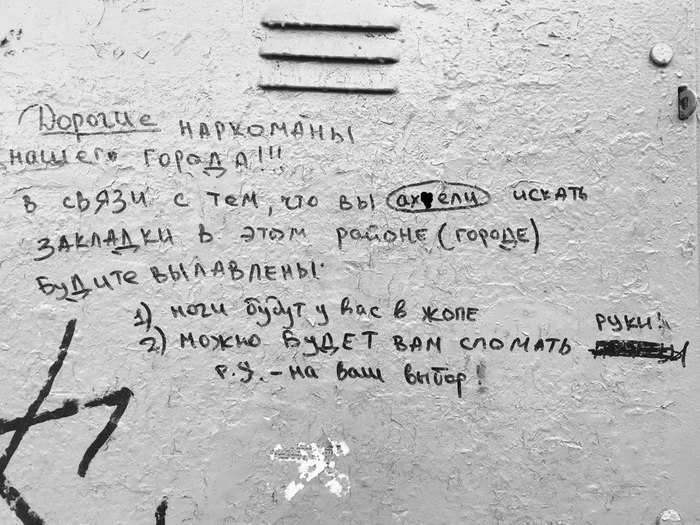 Дорогие наркоманы
нашего города!!!
в связи с тем, что вы ах♥ели искать
закладки в этом районе (городе)
будите вылавлены:
1) ноги будут у вас в жопе
2) можно будет вам сломать руки!!
P.S. - на ваш выбор!